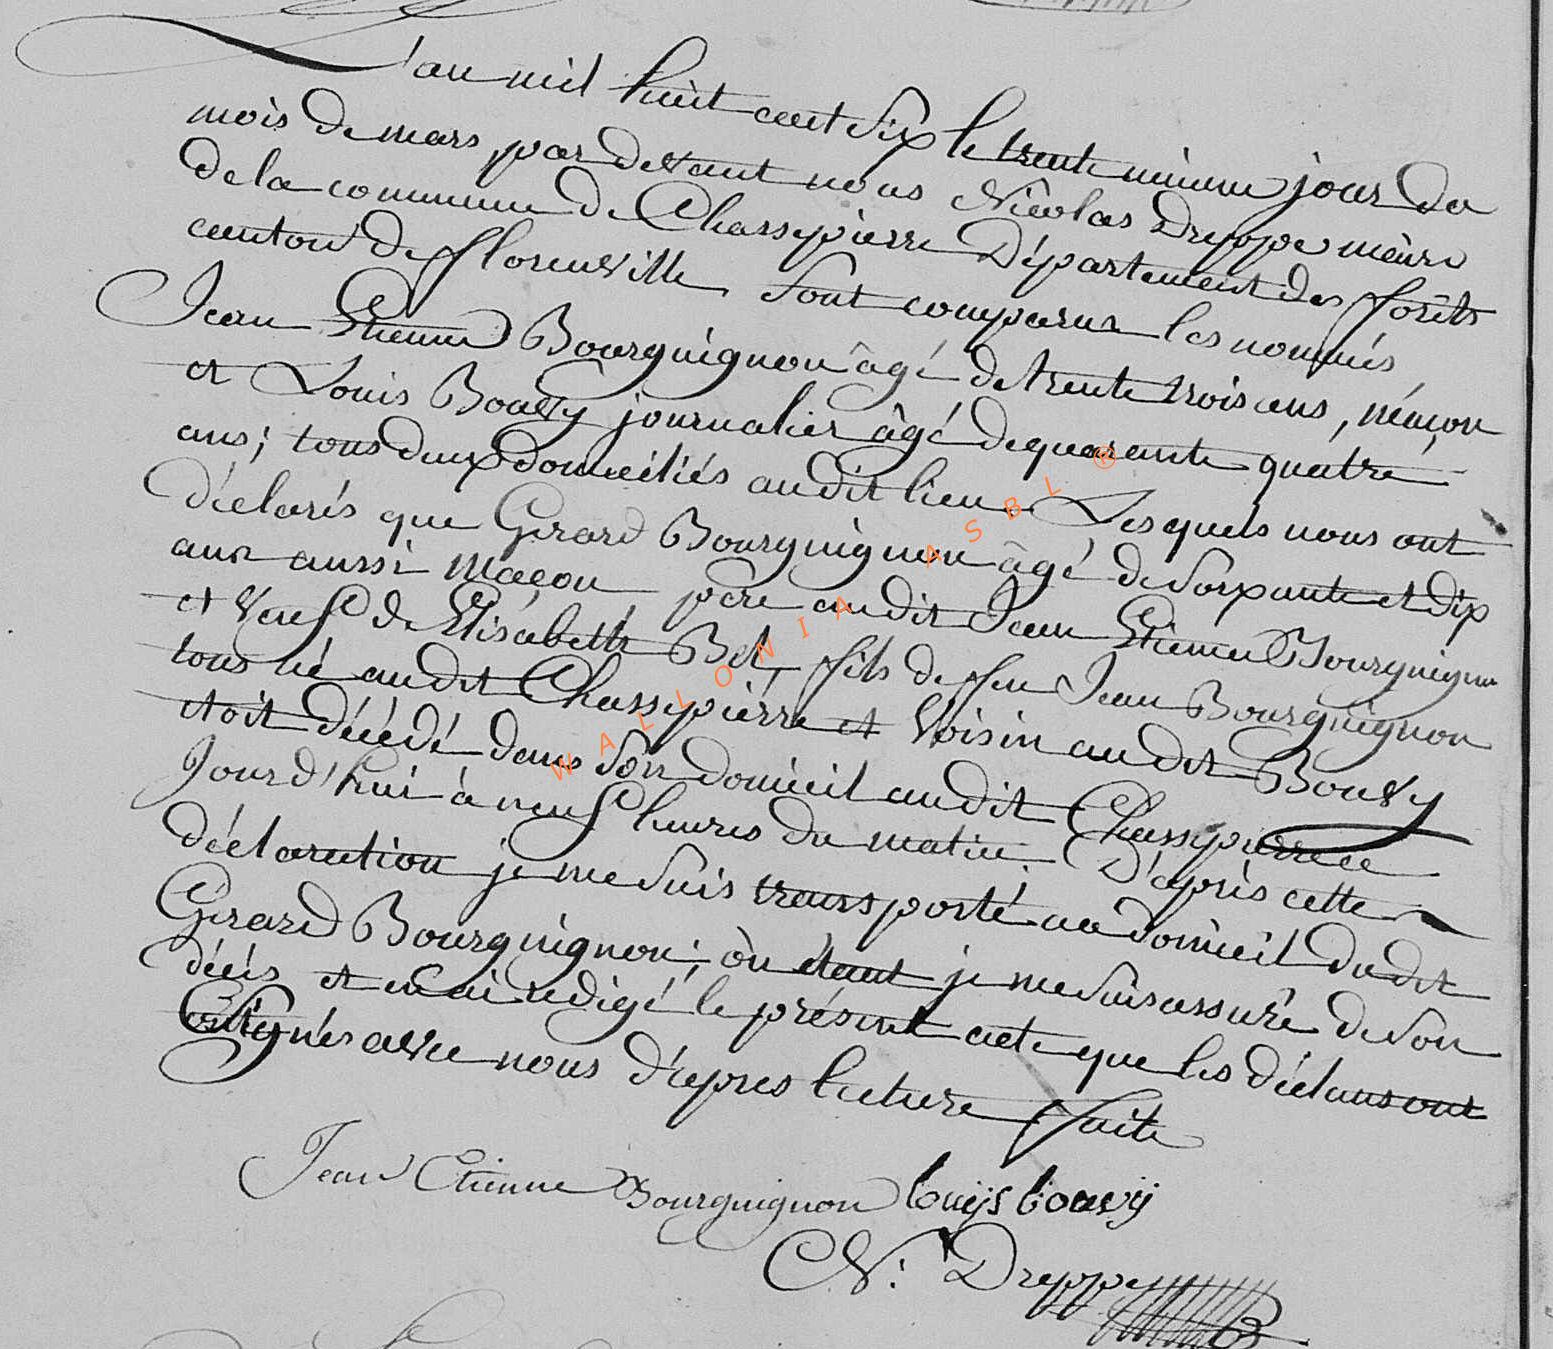 L'an mil huit cent six le trente unieme jour du
mois de mars, par devant nous Nicolas Dreppe maire
de la commune de Chassepierre Département des forêts
canton de florenville sont comparus les nommés
Jean Etienne Bourguignon âgé de trente trois ans, maçon
et Louis Bouvy journalier âgé de quarante quatre
ans; tous deux domiciliés audit lieu Lesquels nous ont
déclarés que Gérard Bourguignon âgé de soixante et dix
ans aussi maçon père audit Jean Etienne Bourguignon
et veuf de Elisabeth fils de feu Jean Bourguignon
tous né audit Chassepierre et voisin audit Bouvy
etoit décédé dans son domicil audit Chassepierre ce
Jourd'hui à neuf heures du matin. D'après cette
déclaration je me suis transporté au domicil dudit
Gérard Bourguignon; où étant je me suis assuré de son
décès et en ai redigé le présent acte que les déclans ont
signés avec nous d'apres lecture faite
Jean Etienne Bourguignon Louijs bouvij
N: Dreppe
WALLONIA ASBL ®